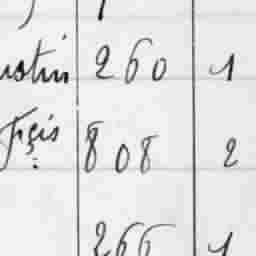 ustin 260 1
Fçis 808 2
266 1